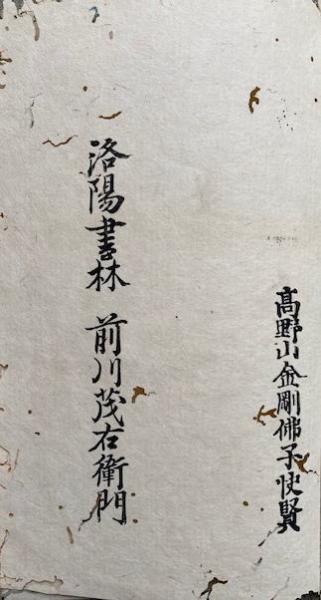 髙野山金剛佛子快賢
洛陽書林 前川茂右衛門